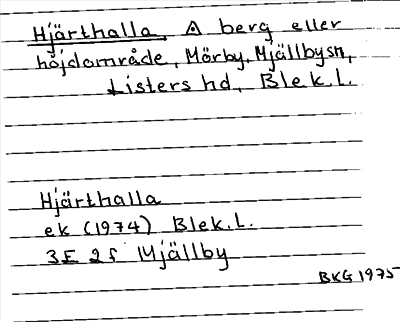 Hjärthalla, A berg eller
höjdområde, Mörby, Mjällbysn,
Listers hd, Blek.l.
Hjärthalla
ek (1974) Blek.l.
3E 2f Mjällby
BKG 1975